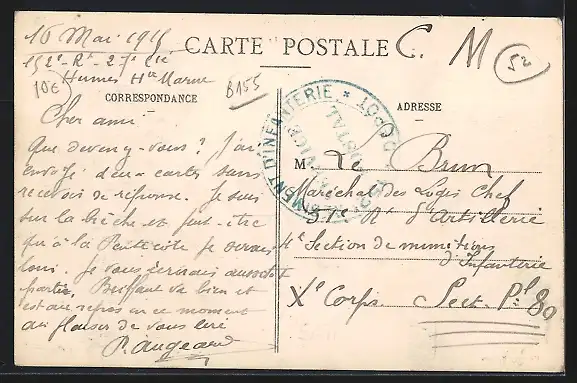 16 Mai 1915
152e Rt - 27e Cie
Humes Hte Marne
10€
B155
CARTE POSTALE
C. M
52
CORRESPONDANCE
ADRESSE
Cher ami
Que devenez-vous? J'ai
envoyé deux cartes sans
recevoir de réponse. Je suis
sur la brèche et peut-être
qu'à la Pentecôte je serai
loin. Je vous écrirai aussitôt
partir. va bien et
est au repos en ce moment
au plaisir de vous lire
P. Augeard
M Le Brun
Maréchal des Logis Chef
Rt d'Artillerie
4e Section de munitions
d'Infanterie
Xe Corps. Sect. Pl 89
D'INFANTERIE * DEPOT